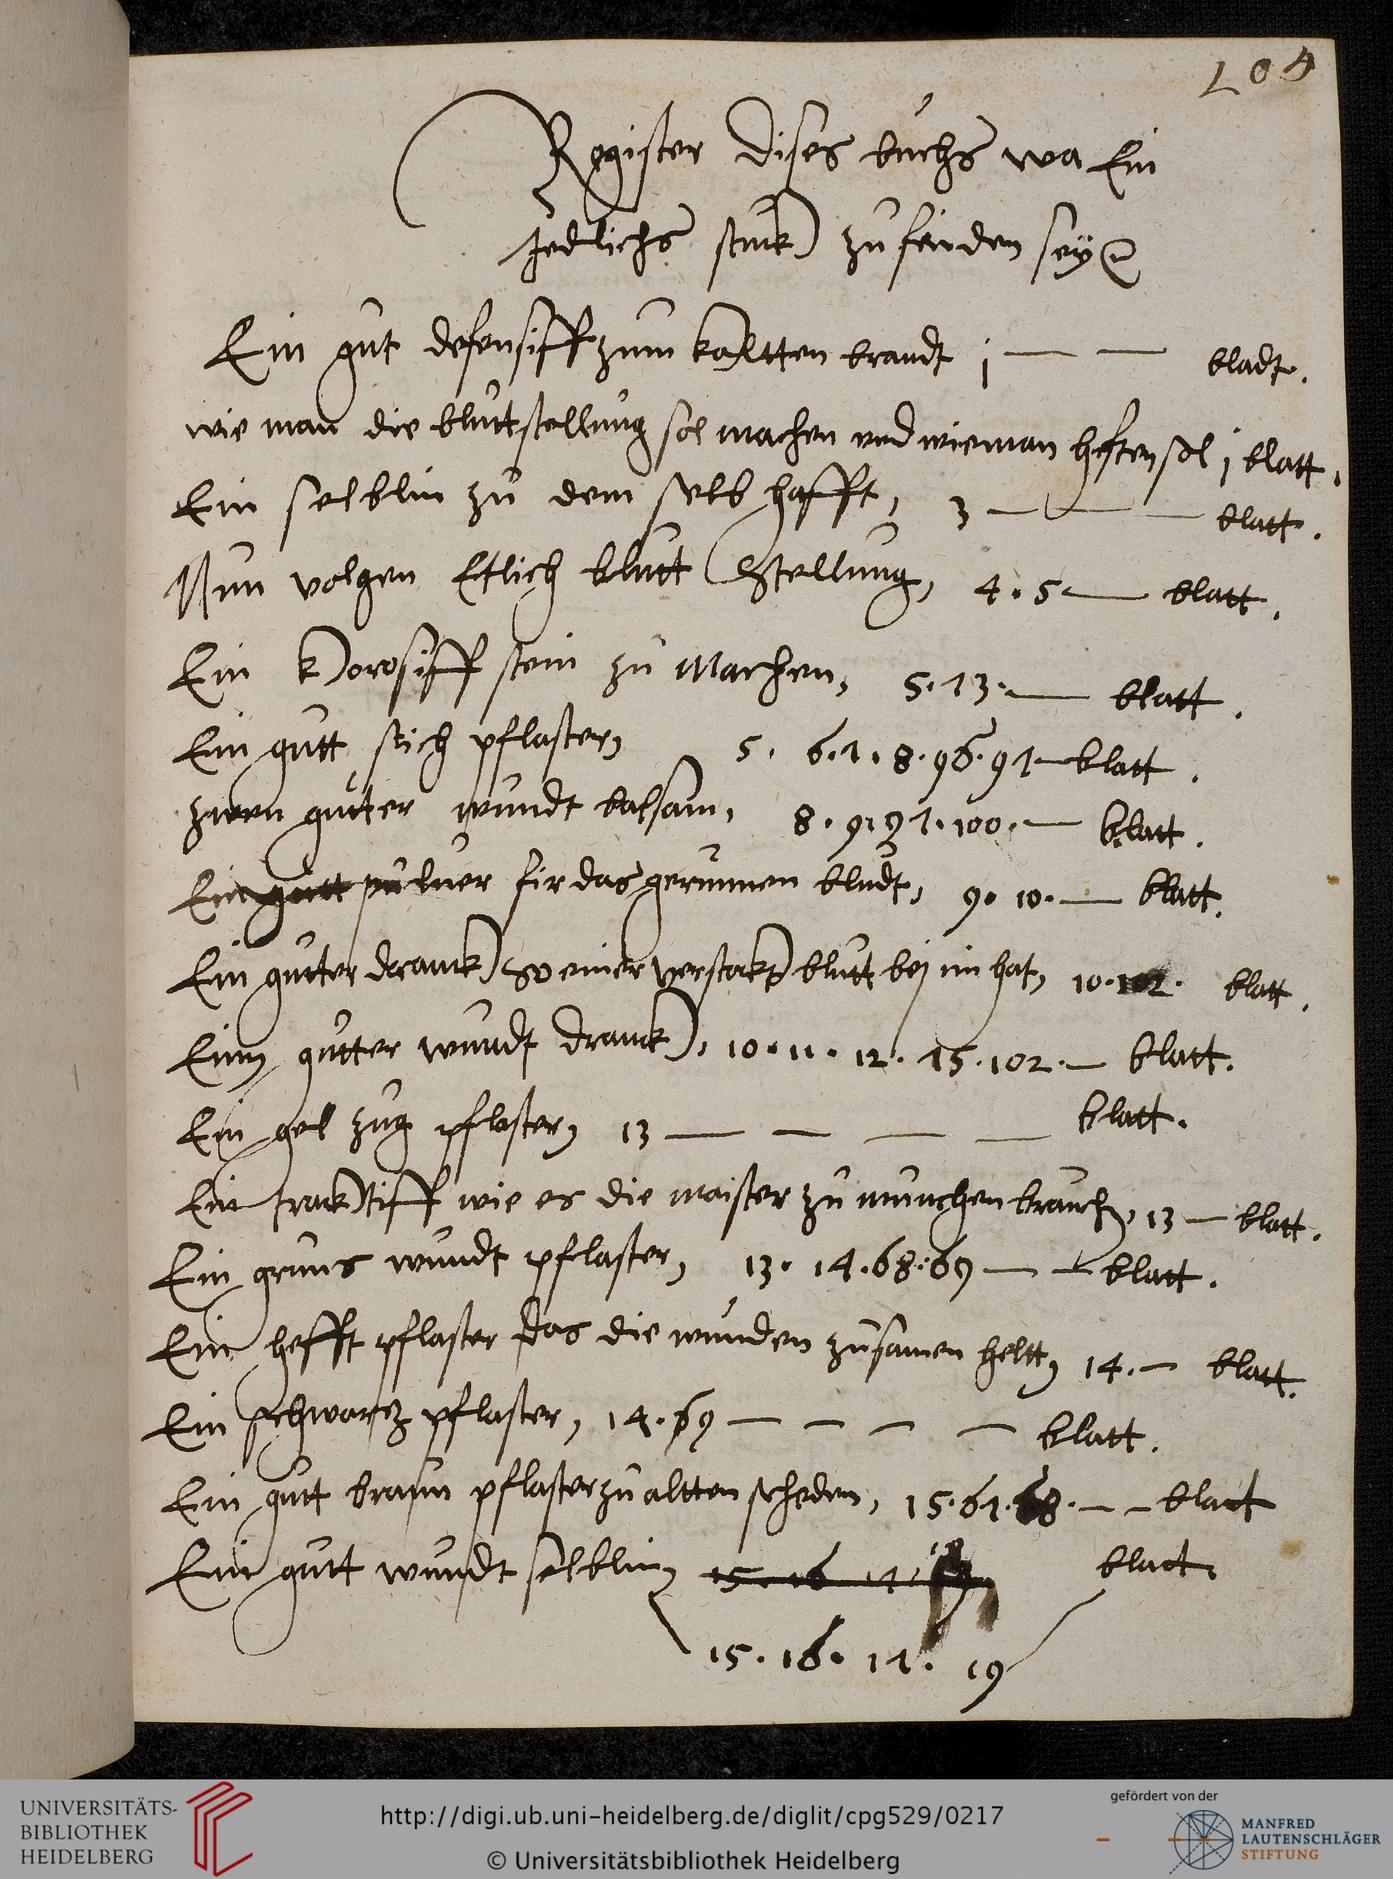 104
Register dises buchs wa Ein
Jedlichs stuck zu finden sey
Ein gut defensiff zum kaltten brandt 1 — — bladt.
wie man die bluttstellung sol machen und wie man heften sol 1 blatt.
Ein selblin zu dem selb hafft, 3 — — — blatt.
Nun volgen Etlich blutt Stellung, 4. 5 — blatt.
Ein Korosiff stein zu Machen, 5. 13. — blatt.
Ein gutt stich pflaster, 5. 6. 7. 8. 96. 97 — blatt.
zwen gutter wundt balsam, 8. 9. 97. 100. — blatt.
Ein gutt puluer fir das gerunnen bludt, 9. 10. — blatt.
Ein gutter dranck so einer verstockt blutt bej im hat, 10. 102. blatt.
Einn gutter wundt dranck, 10. 11. 12. 15. 102. — blatt.
Ein gel zug pflaster, 13 — — — — blatt.
Ein tracktiff wie es die maister zu munchen brauch, 13 — blatt.
Ein gruns wundt pflaster, 13. 14. 68. 69 — — blatt.
Ein hefft pflaster das die wunden zusamen heltt, 14. — blatt.
Ein schwartz pflaster, 14. 69 — — — — blatt.
Ein gutt braun pflaster zu altten scheden, 15. 67. 68. — — blatt
Ein gutt wundt selblin, 15. 16 17. blatt.
15. 16. 17. 19
UNIVERSITÄTS-
BIBLIOTHEK
HEIDELBERG
http://digi.ub.uni-heidelberg.de/diglit/cpg529/0217
© Universitätsbibliothek Heidelberg
gefördert von der
MANFRED
LAUTENSCHLÄGER
STIFTUNG